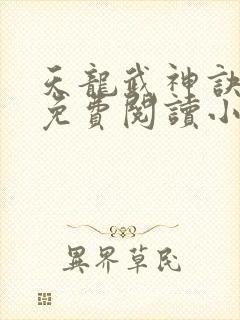 天龍武神訣
免費閱讀小
異界草民